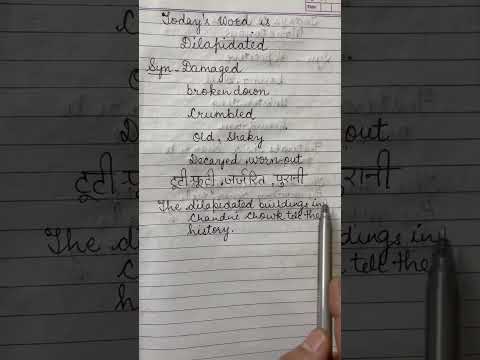 Today's Word is
Dilapidated
Syn - Damaged
broken down
Crumbled
Old, Shaky
Decayed, worn-out
टूटी-फूटी, जर्जरित, पुरानी
The dilapidated buildings in
Chandni Chowk tell the
history.